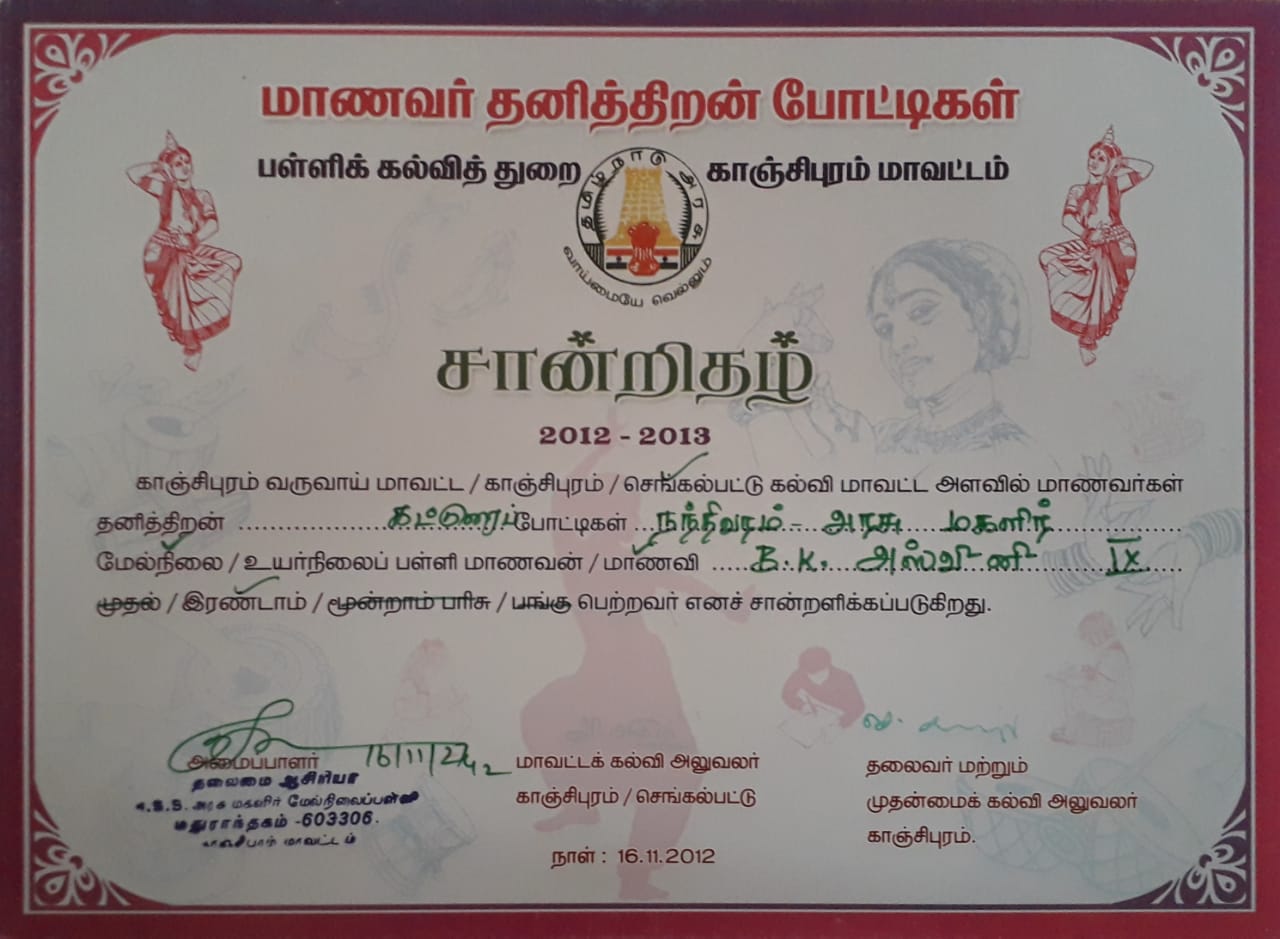 மாணவர் தனித்திறன் போட்டிகள்
பள்ளிக் கல்வித் துறை காஞ்சிபுரம் மாவட்டம்
தமிழ்நாடு அரசு
வாய்மையே வெல்லும்
சான்றிதழ்
2012 - 2013
காஞ்சிபுரம் வருவாய் மாவட்ட / காஞ்சிபுரம் / செங்கல்பட்டு கல்வி மாவட்ட அளவில் மாணவர்கள்
தனித்திறன் .................... கட்டுரைப் போட்டிகள் ...நந்திவரம்- அரசு மகளிர்....................
மேல்நிலை / உயர்நிலைப் பள்ளி மாணவன் / மாணவி .....B.K. அஸ்வினி IX.....
முதல் / இரண்டாம் / மூன்றாம் பரிசு / பங்கு பெற்றவர் எனச் சான்றளிக்கப்படுகிறது.
அமைப்பாளர் 16/11/2012
தலைமை ஆசிரியர்
அரசு மகளிர் மேல்நிலைப்பள்ளி
மதுராந்தகம் -603306.
காஞ்சிபுரம் மாவட்டம்
மாவட்டக் கல்வி அலுவலர்
காஞ்சிபுரம் / செங்கல்பட்டு
நாள் : 16.11.2012
தலைவர் மற்றும்
முதன்மைக் கல்வி அலுவலர்
காஞ்சிபுரம்.